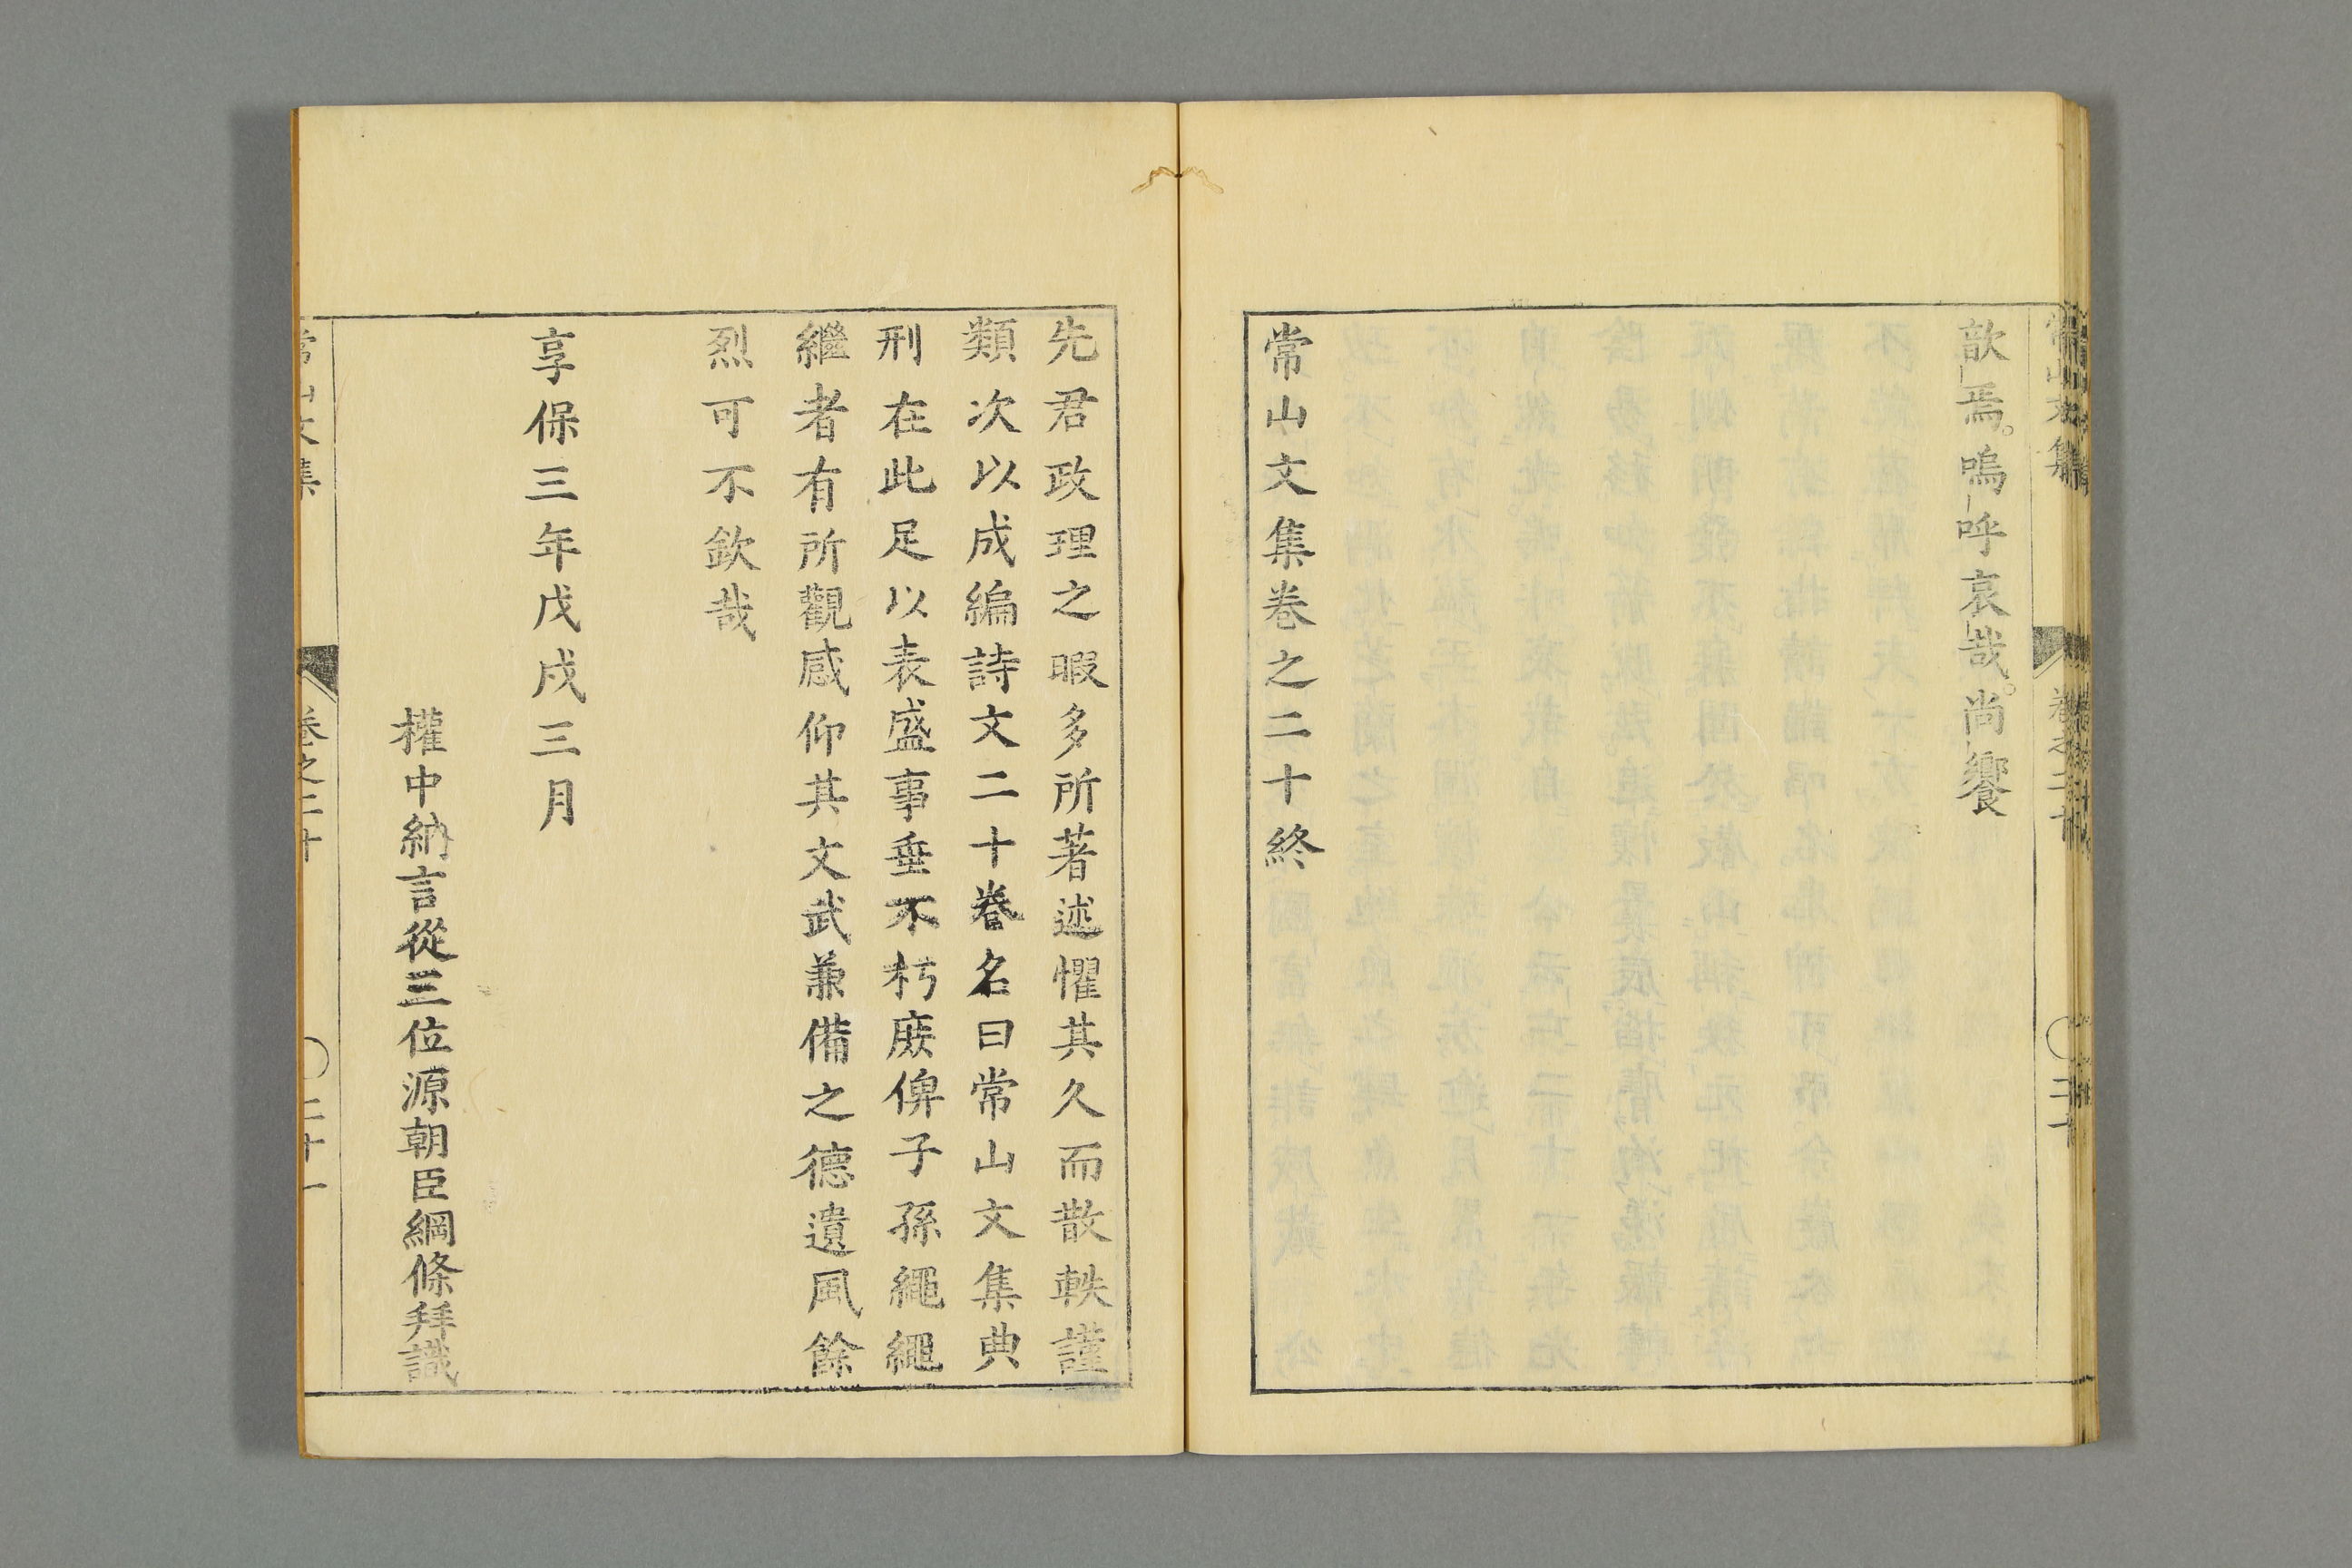 歆焉。嗚呼哀哉。尚饗
常山文集卷之二十終
先君政理之暇多所著述懼其久而散軼謹
類次以成編詩文二十卷名曰常山文集典
刑在此足以表盛事垂不朽庶俾子孫繩繩
繼者有所觀感仰其文武兼備之德遺風餘
烈可不欽哉
享保三年戊戌三月
權中納言從三位源朝臣綱條拜識
常山文集 卷之二十 〇二十一